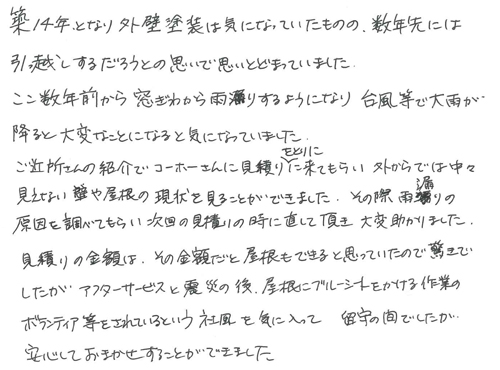 築14年となり外壁塗装は気になっていたものの、数年先には
引っ越しするだろうとの思いで思いとどまっていました。
ここ数年前から窓ぎわから雨漏りするようになり台風等で大雨が
降ると大変なことになると気になっていました。
ご近所さんの紹介でコーホーさんに見積りをとりに来てもらい外からでは中々
見えない壁や屋根の現状を見ることができました。その際雨漏りの
原因を調べてもらい次回の見積りの時に直して頂き大変助かりました。
見積りの金額は、その金額だと屋根もできると思っていたので驚きで
したがアフターサービスと震災の後、屋根にブルーシートをかける作業の
ボランティア等をされているという社風を気に入って 留守の間でしたが
安心しておまかせすることができました